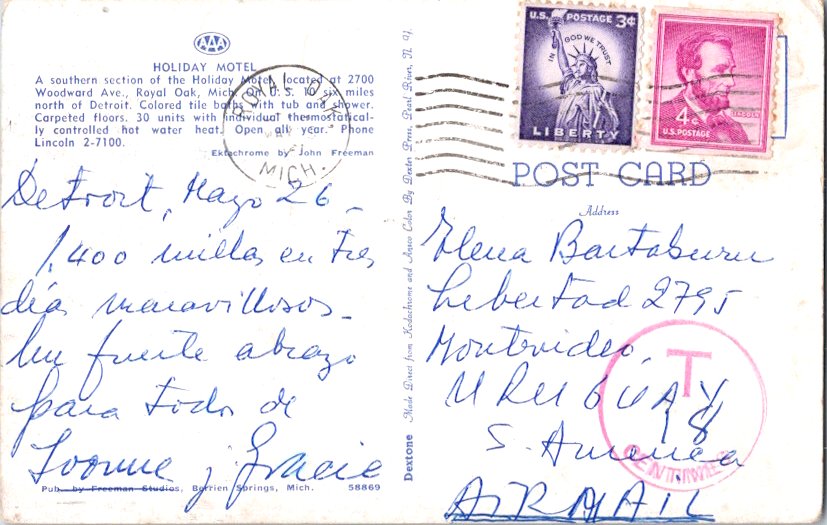 AAA
HOLIDAY MOTEL
A southern section of the Holiday Motel located at 2700
Woodward Ave., Royal Oak, Mich. On U.S. 10 six miles
north of Detroit. Colored tile baths with tub and shower.
Carpeted floors. 30 units with individual thermostatical-
ly controlled hot water heat. Open all year. Phone
Lincoln 2-7100.
Ektachrome by John Freeman
MICH.
Detroit, Mayo 26 -
1.400 millas en tres
día maravillosos -
Un fuerte abrazo
para todos de
Ivonne y Gracie
Pub. by Freeman Studios, Berrien Springs, Mich. 58869
Dextone Made Direct from Kodachrome and Ansco Color By Dexter Press, Pearl River, N. Y.
U.S. POSTAGE 3¢
IN GOD WE TRUST
LIBERTY
LINCOLN
4¢
U.S. POSTAGE
POST CARD
Address
Elena Bartaburu
Libertad 2795
Montevideo,
URUGUAY
T
18
S. America
CENTIMES
AIRMAIL